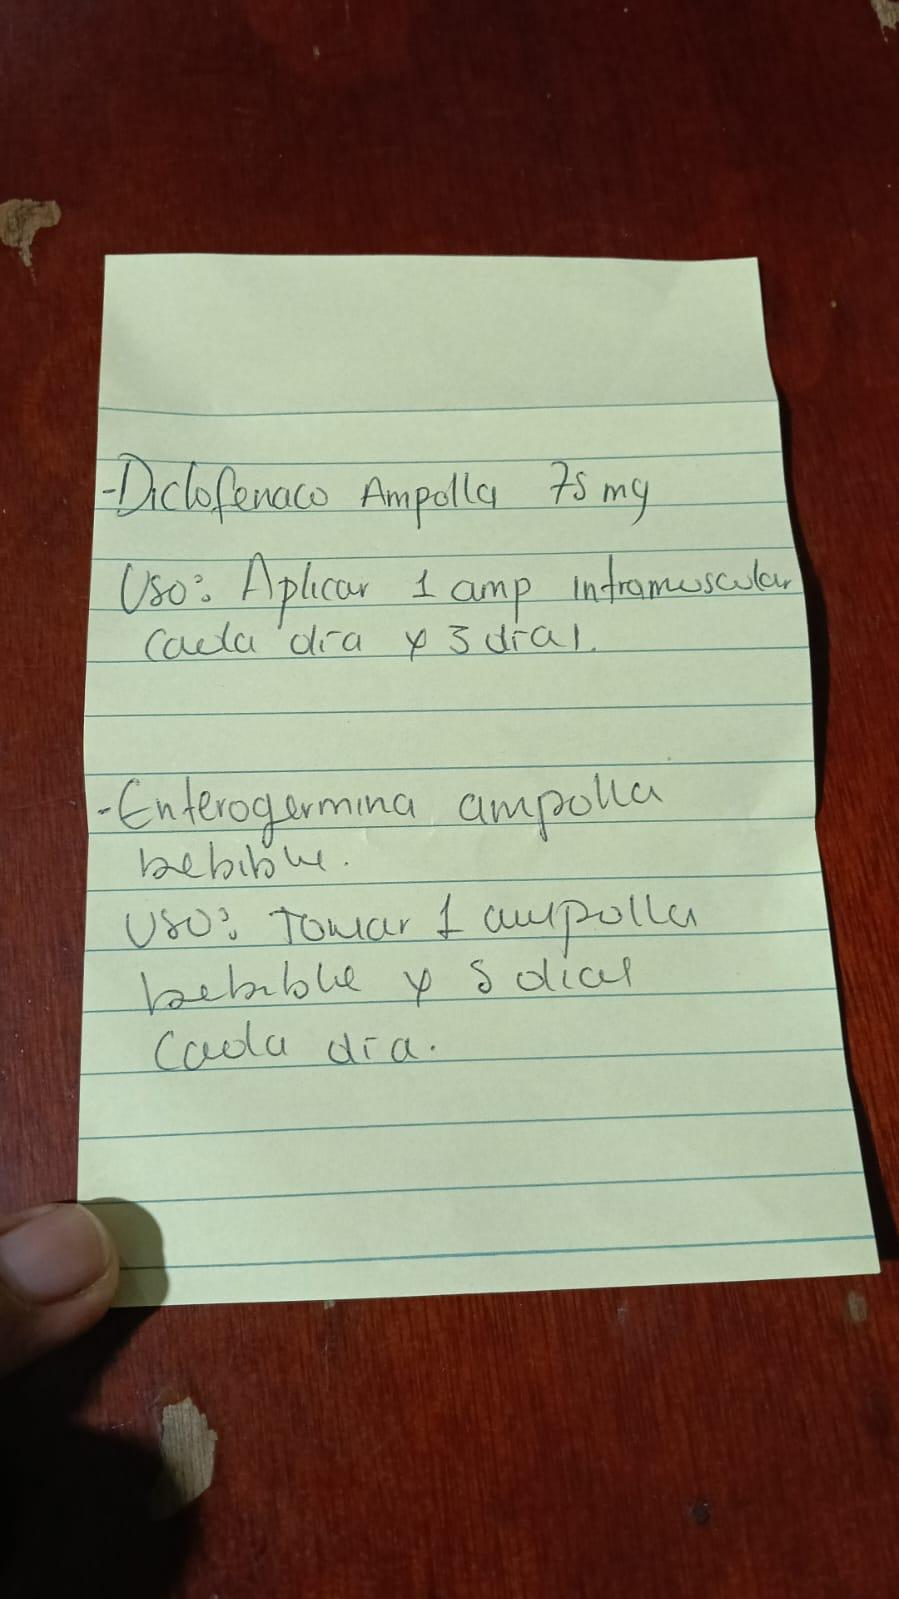 -Diclofenaco Ampolla 75 mg
Uso: Aplicar 1 amp intramuscular
cada día x 3 días.
-Enterogermina ampolla
bebible.
Uso: Tomar 1 ampolla
bebible x 5 días
Cada día.